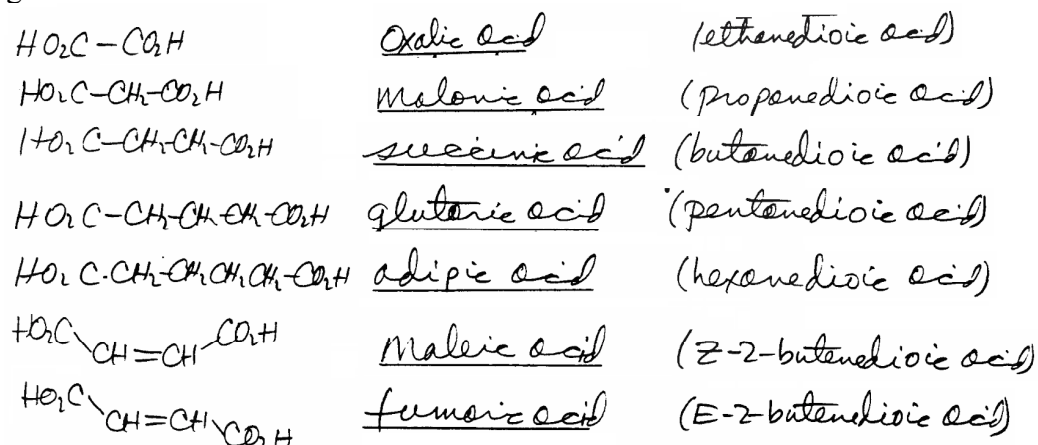 HO₂C-CO₂H Oxalic acid (ethanedioic acid)
HO₂C-CH₂-CO₂H malonic acid (propanedioic acid)
HO₂C-CH₂-CH₂-CO₂H succinic acid (butanedioic acid)
HO₂C-CH₂-CH₂-CH₂-CO₂H glutaric acid (pentanedioic acid)
HO₂C-CH₂-CH₂CH₂CH₂-CO₂H adipic acid (hexanedioic acid)
HO₂C CH=CH CO₂H Maleic acid (Z-2-butenedioic acid)
HO₂C CH=CH CO₂H fumaric acid (E-2-butenedioic acid)